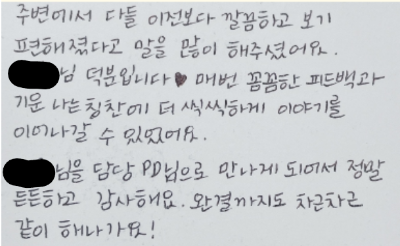 주변에서 다들 이전보다 깔끔하고 보기
편해졌다고 말을 많이 해주셨어요.
님 덕분입니다♥ 매번 꼼꼼한 피드백과
기운 나는 칭찬에 더 씩씩하게 이야기를
이어나갈 수 있었어요.
님을 담당 PD님으로 만나게 되어서 정말
든든하고 감사해요. 완결까지도 차근차근
같이 해나가요!